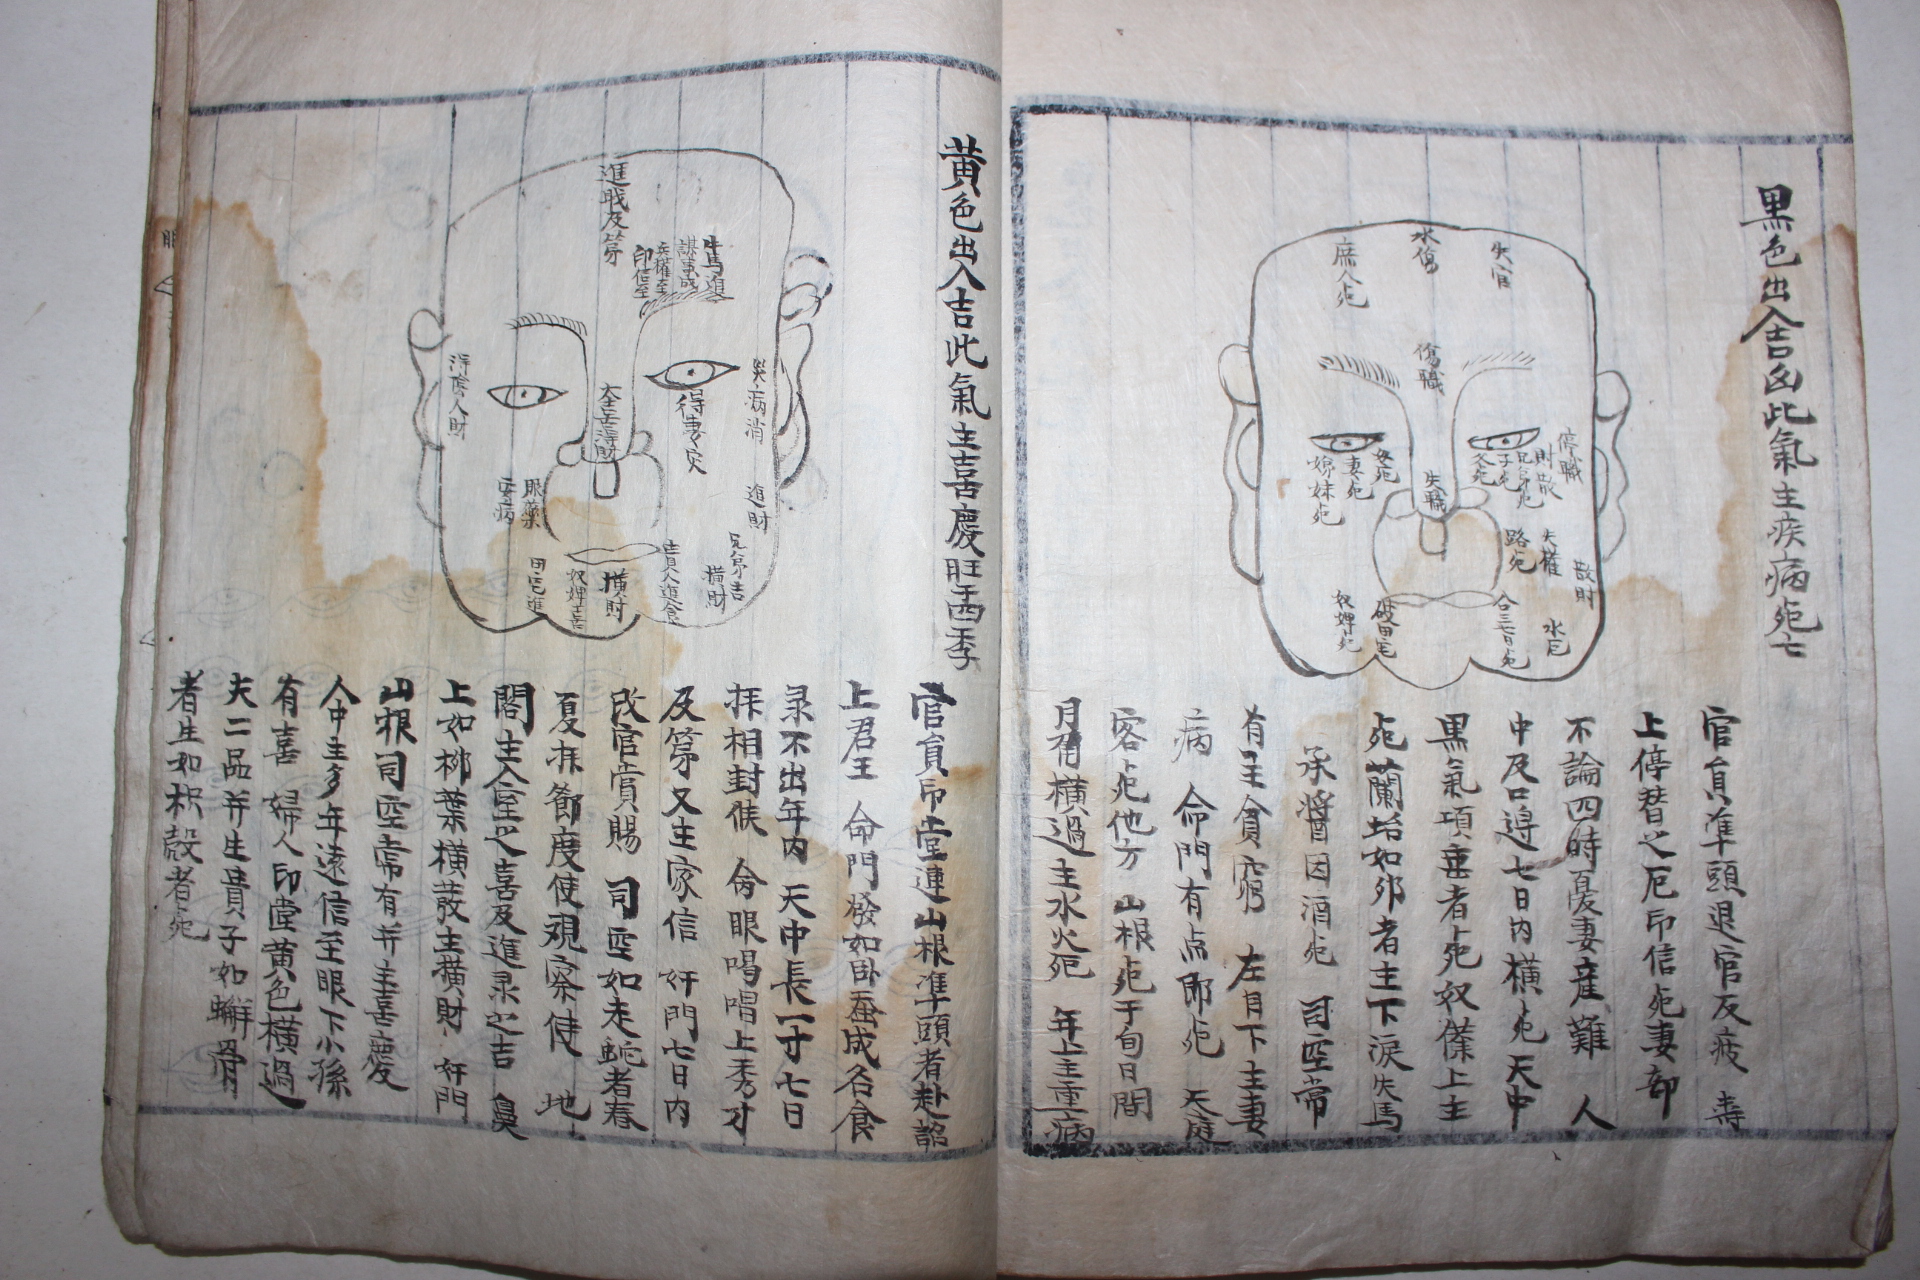 黑色出入吉凶此氣主疾病死亡
失官
水傷
庶人死
傷職
停職
財散
兄弟死
子死
父死
失職
奴死
妻死
姊妹死
散財
失權
路死
水厄
合三七日死
破田宅
奴婢死
官員準頭退官反疲 壽
上停替之厄印信死妻部
不論四時憂妻產難 人
中及口過七日內橫死天中
黑氣項垂者死奴僕上主
死蘭坮如卵者主下淚失馬
承漿酉因酒死 司空常
有主貧窮 左目下主妻
病 命門有点即死 天庭
客死他方 山根死于旬日間
月有橫過主水火死 年上主重病
黃色出入吉此氣主喜慶旺四季
牛馬進
謀事成
兵權至
印信至
進職及第
災病消
得妻灾
年上得財
得陰人財
進財
眼藥
安病
兄弟吉
橫財
貴人進食
橫財
奴婢喜
田宅進
官員印堂連山根準頭者赴詔
上君王 命門發如卧蚕成名食
录不出年內 天中長一寸七日
拜相封候 俞眼喝唱上秀才
及第又主家信 奸門七日內
改官賞賜 司空如走蛇者春
夏拜節度使視察使 地
閣主入室之喜及進录之吉 鼻
上如柳葉橫散主橫財 奸門
山根司空常有并主喜慶
人中主多年遠信至眼下小孫
有喜 婦人印堂黃色橫過
夫二品并生貴子如蟬骨
者生如枳殼者死